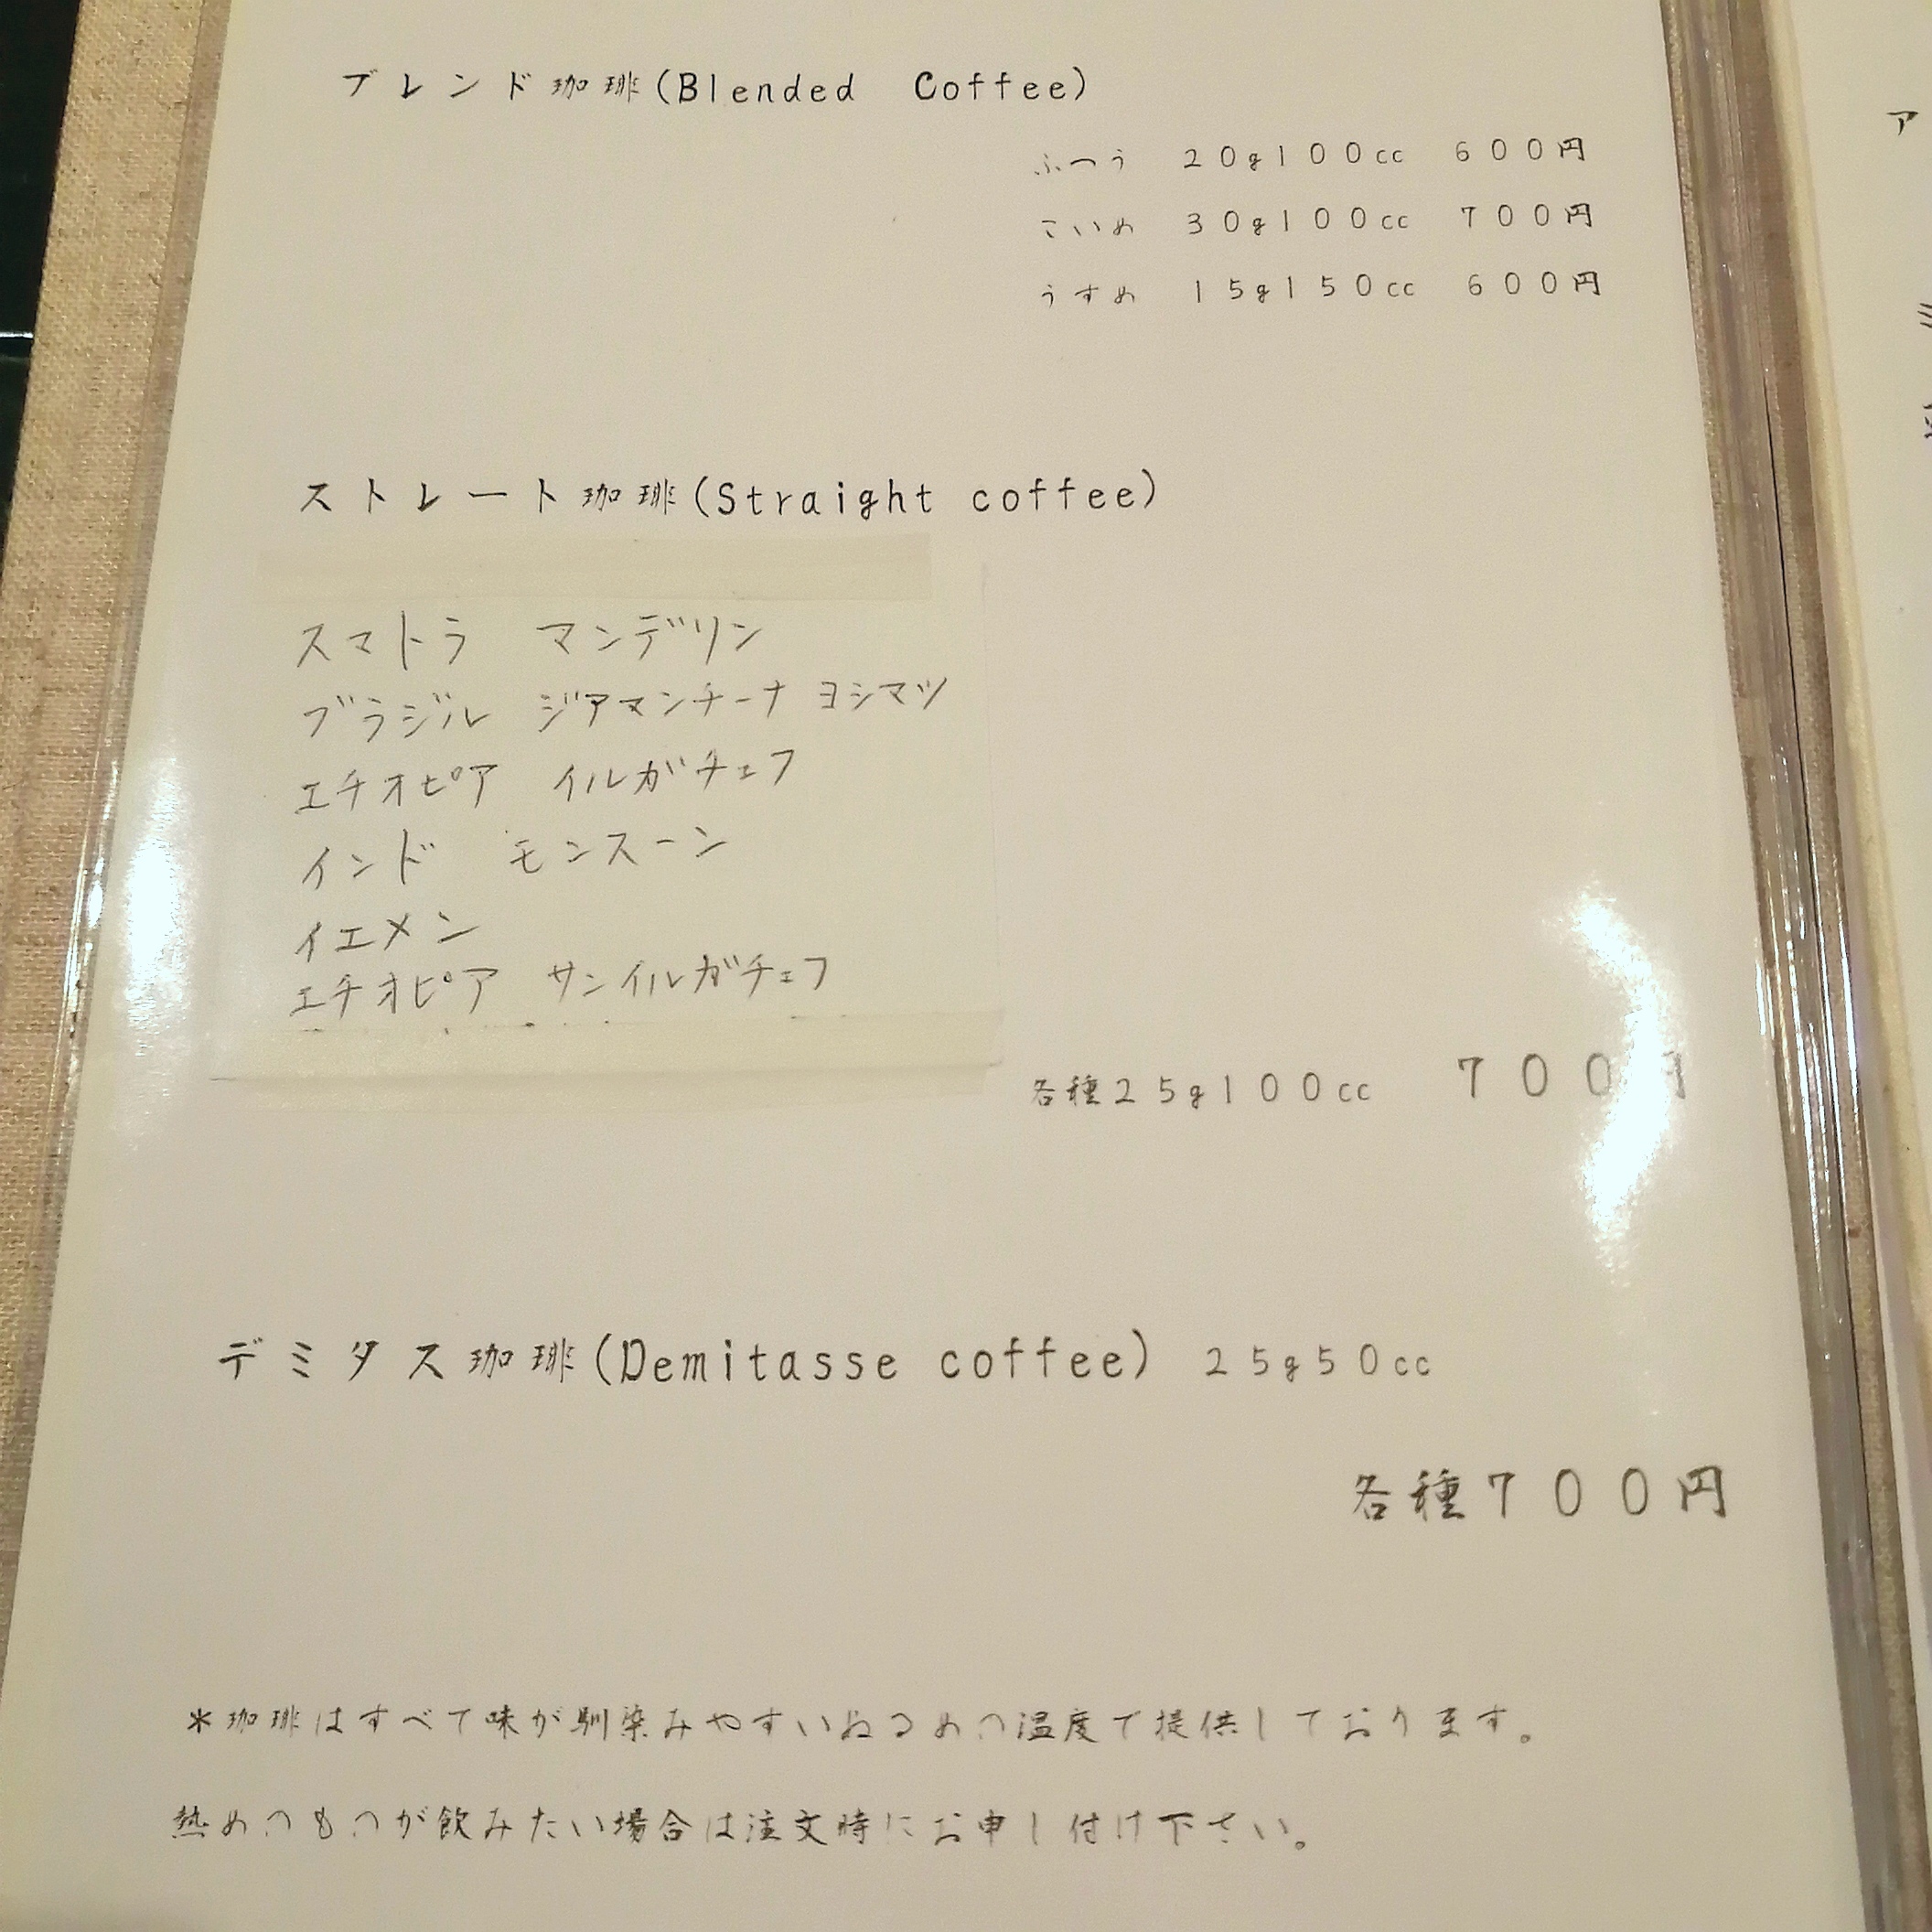 ブレンド珈琲(Blended Coffee)
ふつう 20g100cc 600円
こいめ 30g100cc 700円
うすめ 15g150cc 600円
ストレート珈琲(Straight coffee)
スマトラ マンデリン
ブラジル ジアマンチーナ ヨシマツ
エチオピア イルガチェフ
インド モンスーン
イエメン
エチオピア サンイルガチェフ
各種25g100cc 700円
デミタス珈琲(Demitasse coffee) 25g50cc
各種700円
*珈琲はすべて味が馴染みやすいぬるめの温度で提供しております。
熱めのものが飲みたい場合は注文時にお申し付け下さい。
ア